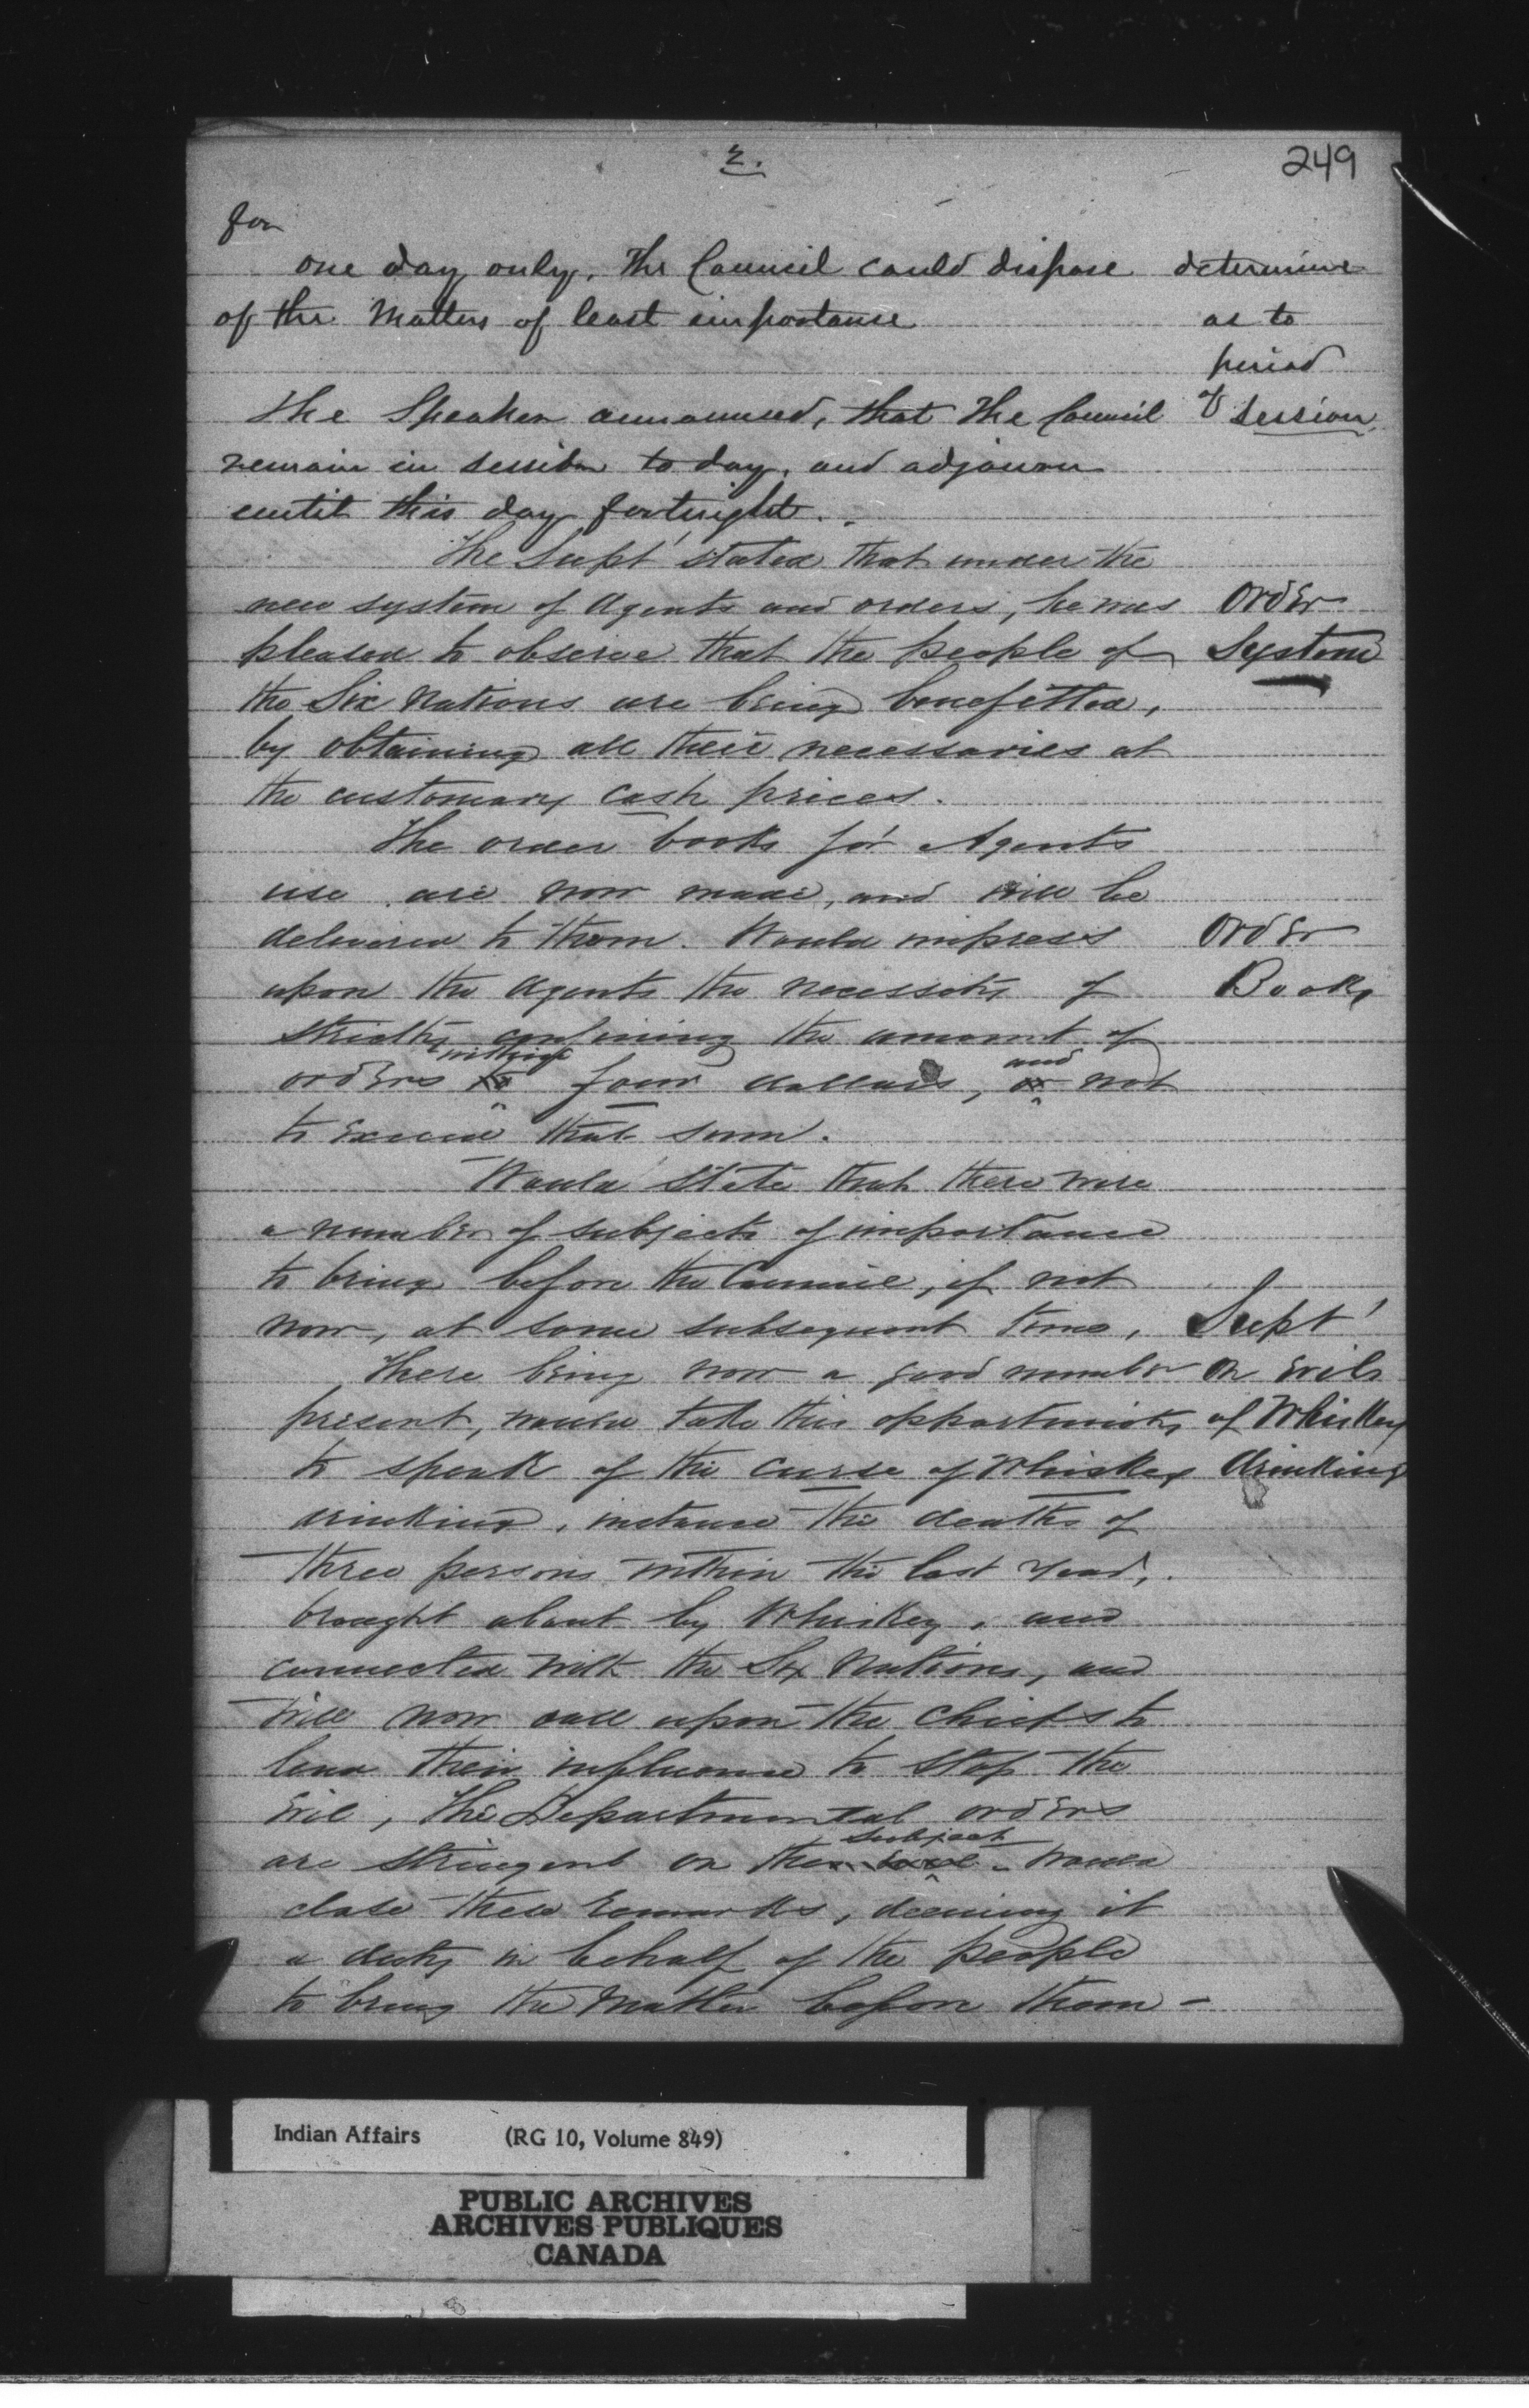 2.
249
for
one day only. The Council could dispose
of the Matters of least importance
determine
as to
period
of Session
The Speaker announced, that The Council
remain in session to day, and adjourn
until this day fortnight.
The Supt' stated that under the
new system of Agents and orders, he was
pleased to observe that the people of
the Six Nations are being benefitted,
by obtaining all their necessaries at
the customary cash prices.
Order
System
The order books for Agents
use are now made, and will be
delivered to them. Would impress
upon the Agents the necessity of
strictly confining the amount of
orders to within four dollars, or and not
to Exceed that sum.
Order
Books
Would State that there were
a number of subjects of importance
to bring before the Council, if not
now, at some subsequent time.
There being now a good number
present, would take this opportunity
to speak of the curse of Whiskey
drinking, instance the deaths of
three persons within the last Year,
brought about by Whiskey, and
connected with the Six Nations, and
Will now call upon the Chiefs to
lend their influence to Stop the
Evil, The Departmental orders
are stringent on the subject. Would
close these remarks, deeming it
a duty in behalf of the people
to bring the Matter before them -
Supt'
on Evils
of Whiskey
drinking
Indian Affairs (RG 10, Volume 849)
PUBLIC ARCHIVES
ARCHIVES PUBLIQUES
CANADA